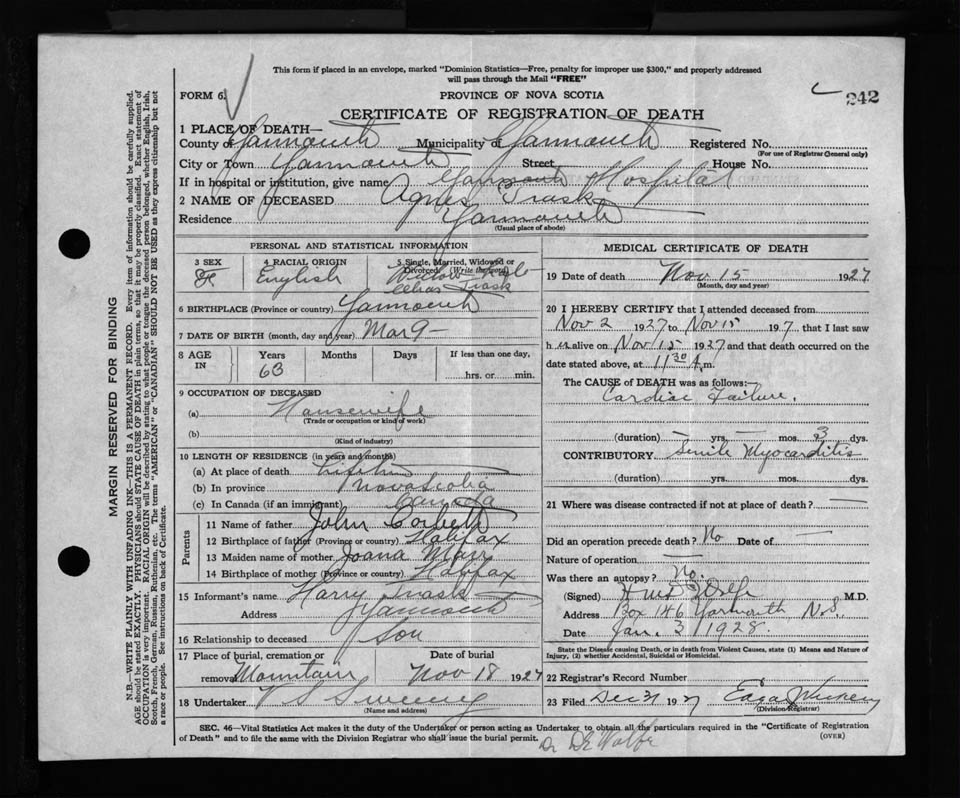 This form if placed in an envelope, marked "Dominion Statistics—Free, penalty for improper use $300," and properly addressed
will pass through the Mail "FREE"
FORM 6. PROVINCE OF NOVA SCOTIA 242
CERTIFICATE OF REGISTRATION OF DEATH
1 PLACE OF DEATH—
County of Yarmouth Municipality of Yarmouth Registered No.
(For use of Registrar General only)
City or Town Yarmouth Street House No.
If in hospital or institution, give name Yarmouth Hospital
2 NAME OF DECEASED Agnes Trask
Residence Yarmouth
(Usual place of abode)
PERSONAL AND STATISTICAL INFORMATION
3 SEX 4 RACIAL ORIGIN 5 Single, Married, Widowed or
Divorced (Write the word)
F English Widow
Trask
6 BIRTHPLACE (Province or country) Yarmouth
7 DATE OF BIRTH (month, day and year) Mar 9—
8 AGE IN Years Months Days If less than one day,
63 hrs. or min.
9 OCCUPATION OF DECEASED
(a) Housewife
(Trade or occupation or kind of work)
(b)
(Kind of industry)
10 LENGTH OF RESIDENCE (in years and months)
(a) At place of death Lifetime
(b) In province Nova Scotia
(c) In Canada (if an immigrant) Canada
Parents
11 Name of father John Corbett
12 Birthplace of father (Province or country) Halifax
13 Maiden name of mother Joana Marr
14 Birthplace of mother (Province or country) Halifax
15 Informant's name Harry Trask
Address Yarmouth
16 Relationship to deceased Son
17 Place of burial, cremation or Date of burial
removal Mountain Nov 18 1927
18 Undertaker V S Sweeny
(Name and address)
MEDICAL CERTIFICATE OF DEATH
19 Date of death Nov 15 1927
(Month, day and year)
20 I HEREBY CERTIFY that I attended deceased from
Nov 2 1927 to Nov 15 1927, that I last saw
h er alive on Nov 15 1927 and that death occurred on the
date stated above, at 11 30 A.m.
The CAUSE of DEATH was as follows:—
Cardiac Failure.
(duration) — yrs. — mos. 3 dys.
CONTRIBUTORY Senile Myocarditis
(duration) yrs. mos. dys.
21 Where was disease contracted if not at place of death? —
Did an operation precede death? No Date of —
Nature of operation —
Was there an autopsy? No.
(Signed) M.D.
Address Box 146 Yarmouth N.S.
Date Jan. 3 1928.
State the Disease causing Death, or in death from Violent Causes, state (1) Means and Nature of
Injury, (2) whether Accidental, Suicidal or Homicidal.
22 Registrar's Record Number
23 Filed Dec 31 1927
(Division Registrar)
SEC. 46—Vital Statistics Act makes it the duty of the Undertaker or person acting as Undertaker to obtain all the particulars required in the "Certificate of Registration
of Death" and to file the same with the Division Registrar who shall issue the burial permit. (OVER)
Dr DeWolfe
MARGIN RESERVED FOR BINDING
N.B.—WRITE PLAINLY WITH UNFADING INK—THIS IS A PERMANENT RECORD. Every item of information should be carefully supplied.
AGE should be stated EXACTLY. PHYSICIANS should STATE CAUSE OF DEATH in plain terms, so that it may be properly classified. Exact statement of
OCCUPATION is very important. RACIAL ORIGIN will be described by stating to what people or tongue the deceased person belonged, whether English, Irish,
Scotch, French, German, Russian, Ruthenian, etc. The terms "AMERICAN" or "CANADIAN" SHOULD NOT BE USED as they express citizenship but not
a race or people. See instructions on back of Certificate.